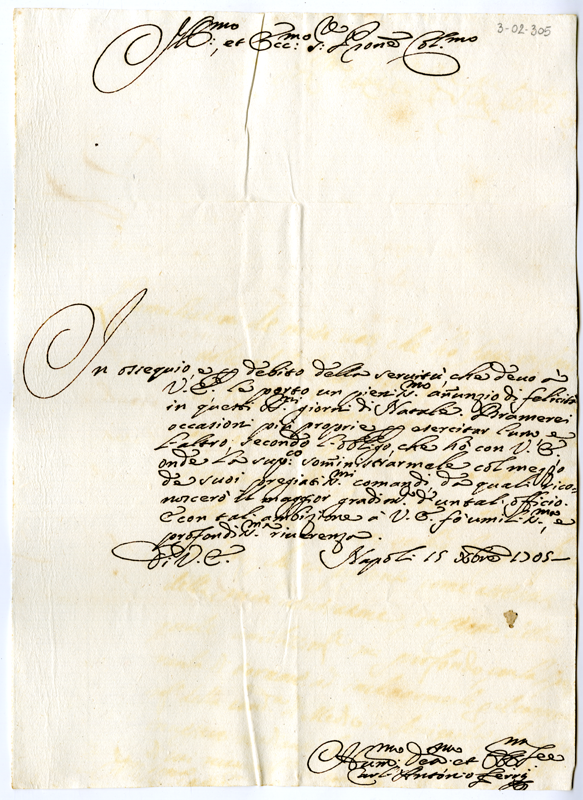 3-02-305
Ill:mo, et Ecc:mo S:re P̃rone Col:mo
In ossequio, e p debito della servitù, che devo à
V. E. le porto un pien:mo annunzio di felicità
in questi S:mi giorni di Natale. Bramerei
occasioni più proprie p esercitar l'uno, e
l'altro secondo l'obligo, che hò con V. E.
onde la sup:co somministrarmele col mezzo
de suoi pregiatiss:mi comandi, da quali rico-
noscerò il maggior gradim:to d'un tal officio.
E con tal ambizione à V. E. fo umiliss:ma, e
profondiss:ma riverenza.
Di V. E. Napoli 15 Xbre 1705
Hum:mo Dev:mo et Obb:mo Ser:re
Carl'Antonio